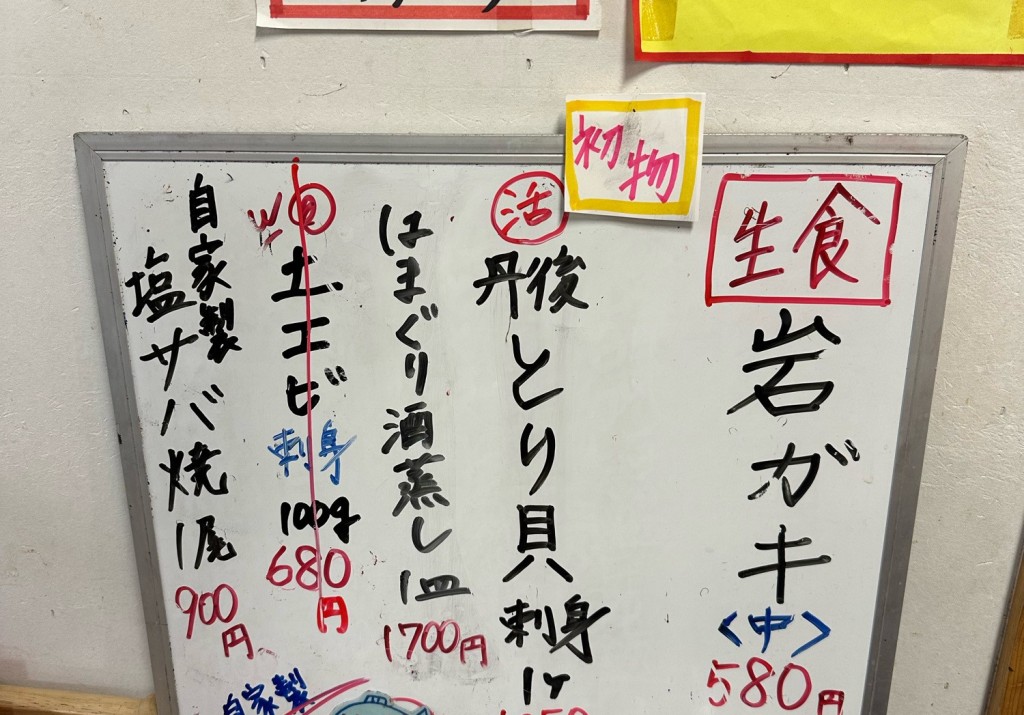 初物
生食
岩ガキ
〈中〉
580円
活
丹後
とり貝
刺身
1ケ
はまぐり酒蒸し
1皿
1700円
エビ
刺身
100g
680円
自家製
塩サバ焼
1尾
900円
自家製